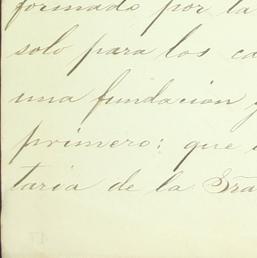 formado por la
solo para los ca
una fundacion y
primero: que
taria de la Sra